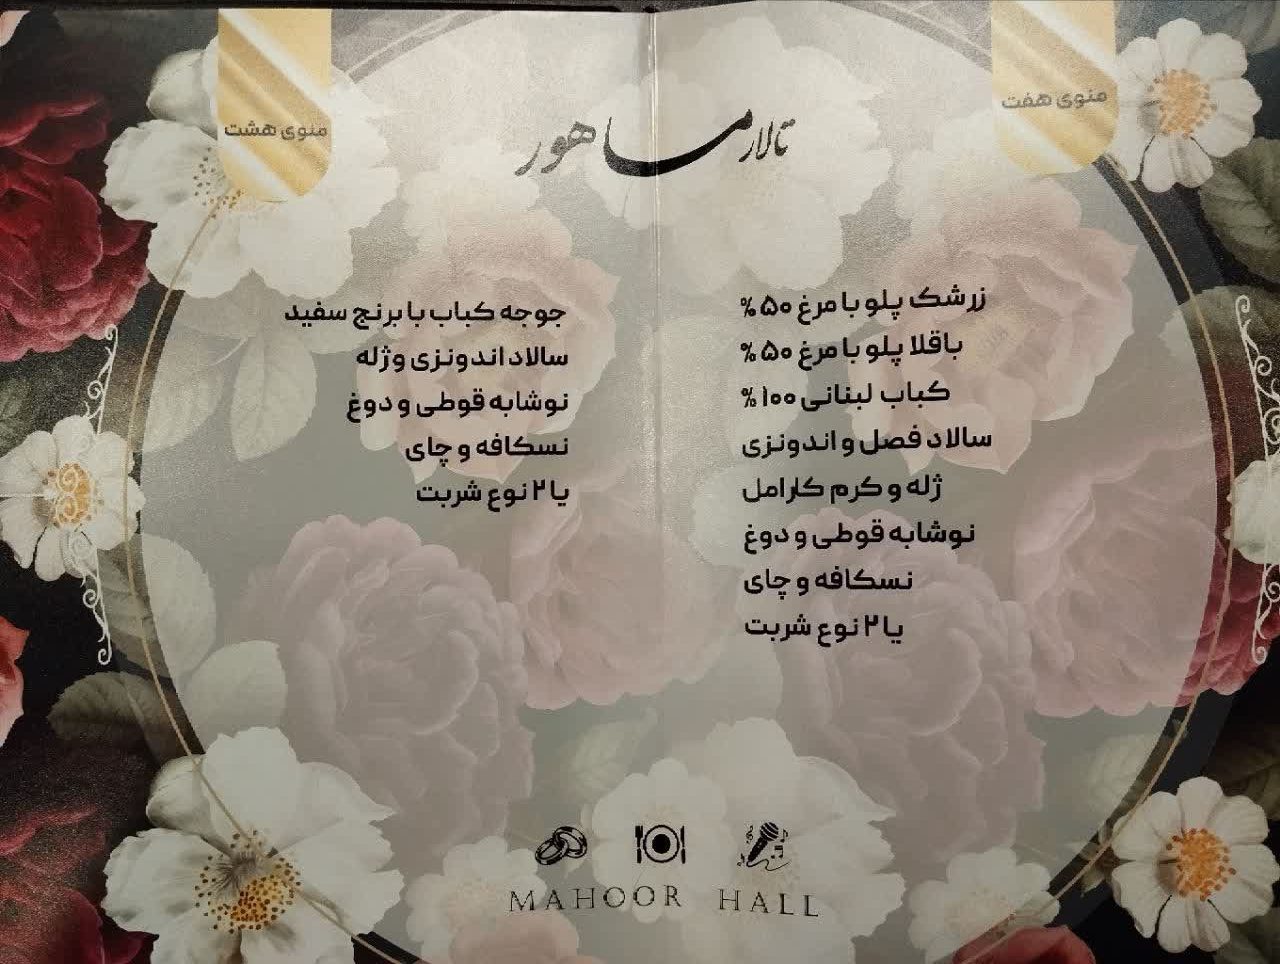 تالار ماهور
منوی هفت
زرشک پلو با مرغ ۵۰%
باقلا پلو با مرغ ۵۰%
کباب لبنانی ۱۰۰%
سالاد فصل و اندونزی
ژله و کرم کارامل
نوشابه قوطی و دوغ
نسکافه و چای
یا ۲ نوع شربت
منوی هشت
جوجه کباب با برنج سفید
سالاد اندونزی و ژله
نوشابه قوطی و دوغ
نسکافه و چای
یا ۲ نوع شربت
MAHOOR HALL